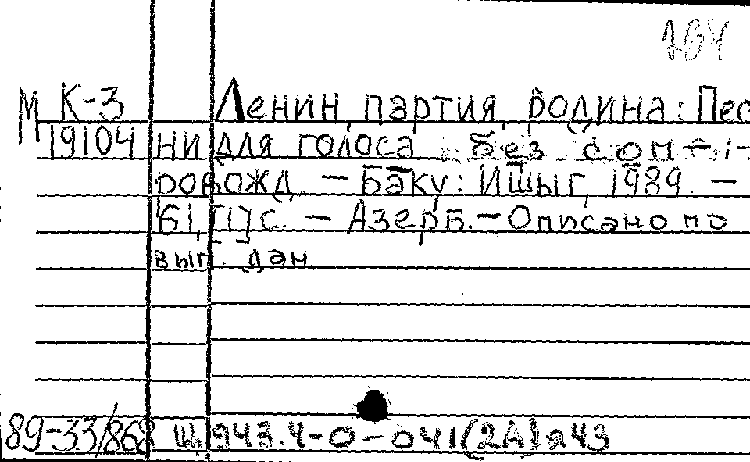 М К-3 Ленин, партия, Родина: Пес
19104 ни для голоса без сопро-
вожд. — Баку: Ишыг, 1989. —
61,[1] с. — Азерб. — Описано по
вып. дан.
89-33/868 Щ943.4-0-041(2А)я43